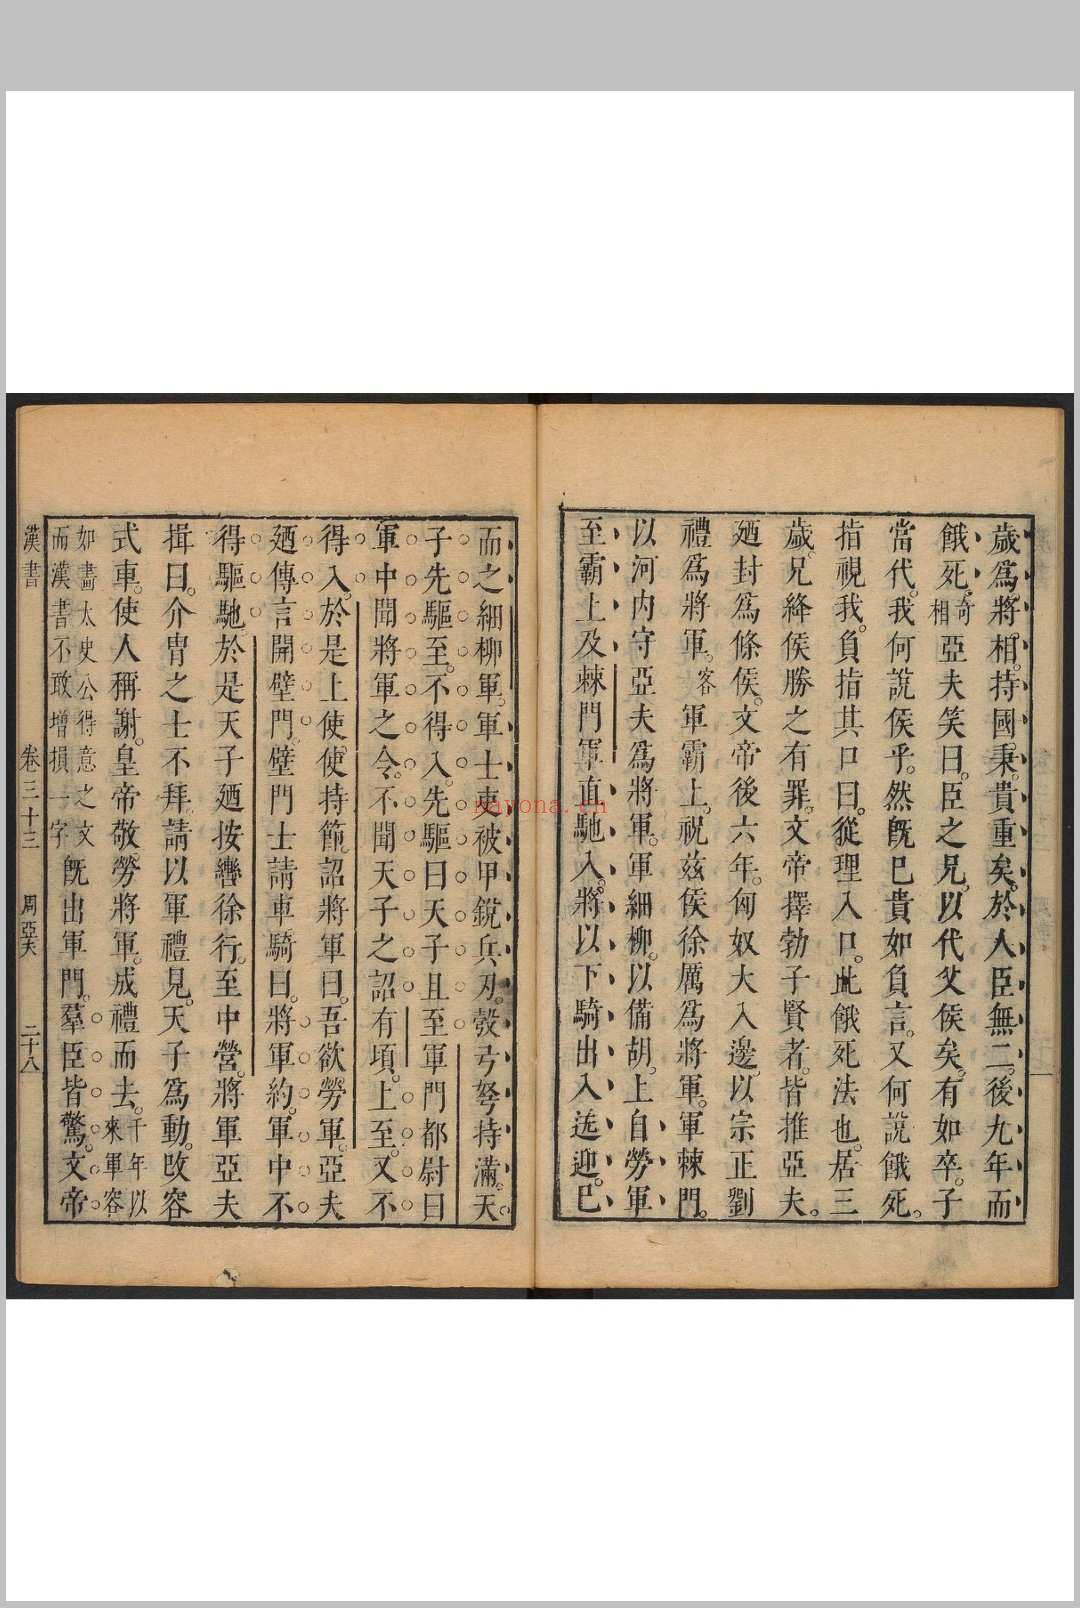 歲爲將相。持國秉。貴重矣。於人臣無二。後九年而
餓死。奇相亞夫笑曰。臣之兄。以代父侯矣。有如卒。子
當代。我何說侯乎。然旣已貴如負言。又何說餓死。
指視我。負指其口曰。從理入口。此餓死法也。居三
歲。兄絳侯勝之有罪。文帝擇勃子賢者。皆推亞夫。
廼封爲條侯。文帝後六年。匈奴大入邊。以宗正劉
禮爲將軍。客軍霸上。祝茲侯徐厲爲將軍。軍棘門。
以河內守亞夫爲將軍。軍細柳。以備胡。上自勞軍
至霸上及棘門軍。直馳入。將以下騎出入迭迎。已
而之細柳軍。軍士吏被甲銳兵刃。彀弓弩持滿。天
子先驅至。不得入。先驅曰天子且至軍門都尉曰
軍中聞將軍之令。不聞天子之詔有頃。上至。又不
得入。於是上使。使持節詔將軍曰。吾欲勞軍。亞夫
廼傳言開壁門。壁門士請車騎曰。將軍約。軍中不
得驅馳。於是天子廼按轡徐行。至中營。將軍亞夫
揖曰。介冑之士不拜。請以軍禮見。天子爲動。攺容
式車。使人稱謝。皇帝敬勞將軍。成禮而去。千年以來軍容
如畫太史公得意之文
而漢書不敢增損一字旣出軍門。羣臣皆驚。文帝
漢書 卷三十三 周亞夫 二十八
nayona.cn